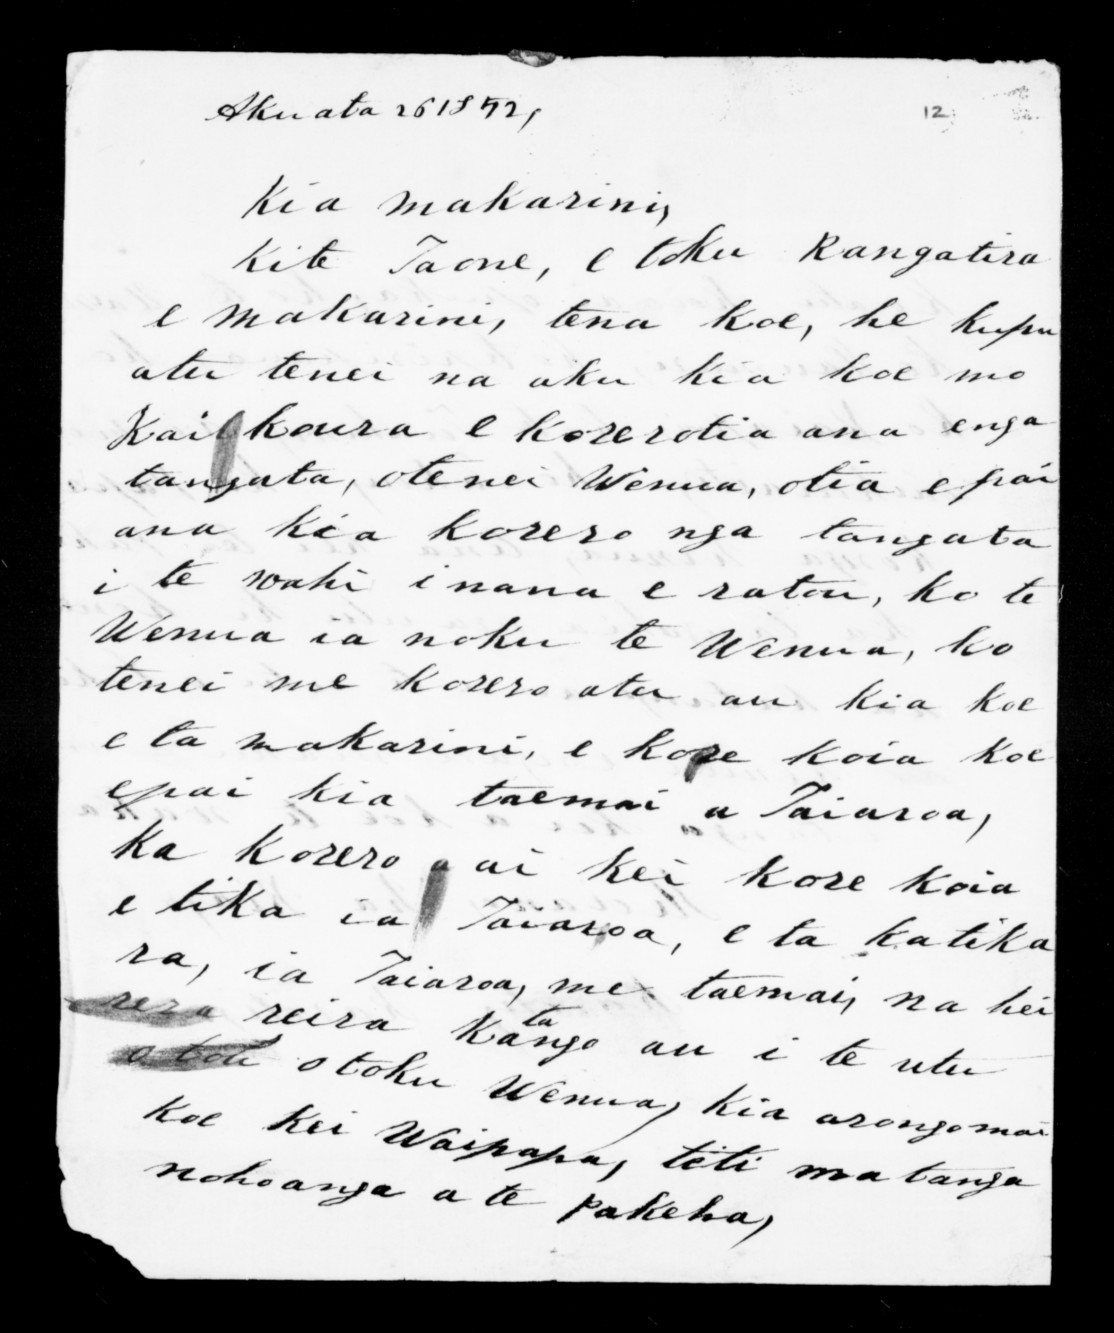 Akuata 26 1852,
12
Kia makarini,
Kite Taone, e toku Rangatira
e makarini, tena koe, he kupu
atu tenei na aku kia koe mo
Kaikoura e korerotia ana enga
tangata, otenei Wenua, otia e pai
ana kia korero nga tangata
i te wahi i nana e ratou, ko te
Wenua ia noku te Wenua, ko
tenei me korero atu au kia koe
e ta makarini, e kore koia koe
epai kia taemai a Taiaroa,
ka korero ai kei kore koia
e tika ia Taiaroa, e ta katika
ra, ia Taiaroa, me taemai, na hei
reira Katango au i te utu
otoku Wenua, kia arongomai
koe kei Waipapa, teti matanga
nohoanga a te pakeha,